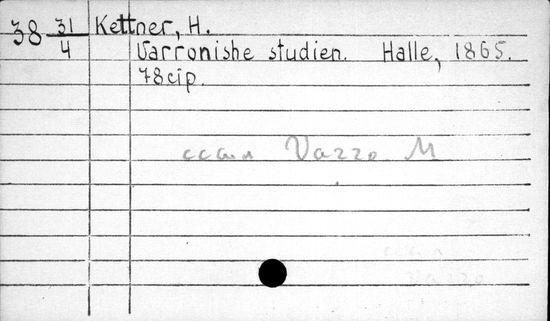 38 31/4 Kettner, H.
Varronishe studien. Halle, 1865.
78 cip.
ссыл Varro M